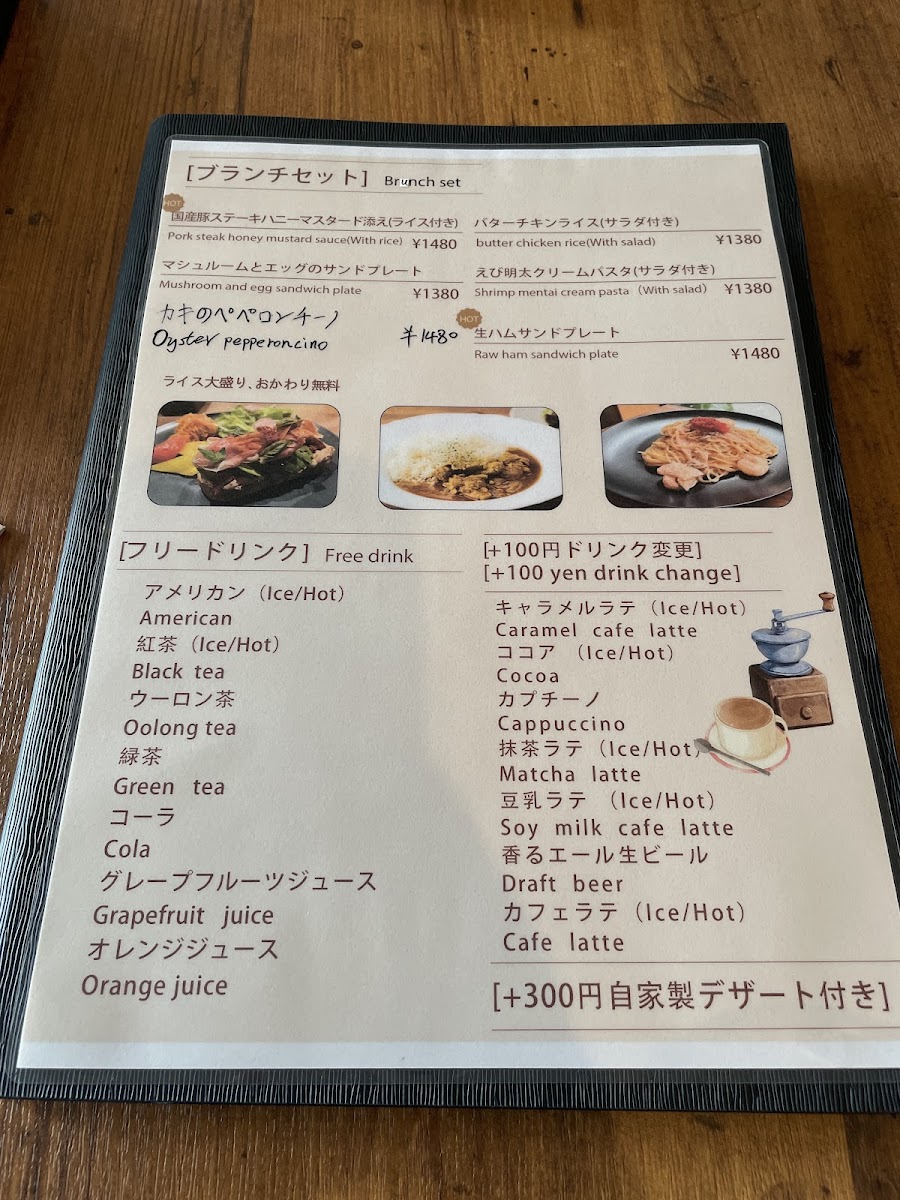 [ブランチセット] Brunch set
HOT
国産豚ステーキハニーマスタード添え(ライス付き)
Pork steak honey mustard sauce(With rice) ¥1480
マシュルームとエッグのサンドプレート
Mushroom and egg sandwich plate ¥1380
カキのペペロンチーノ
Oyster pepperoncino ¥1480
バターチキンライス(サラダ付き)
butter chicken rice(With salad) ¥1380
えび明太クリームパスタ(サラダ付き)
Shrimp mentai cream pasta (With salad) ¥1380
HOT
生ハムサンドプレート
Raw ham sandwich plate ¥1480
ライス大盛り、おかわり無料
[フリードリンク] Free drink
アメリカン (Ice/Hot)
American
紅茶 (Ice/Hot)
Black tea
ウーロン茶
Oolong tea
緑茶
Green tea
コーラ
Cola
グレープフルーツジュース
Grapefruit juice
オレンジジュース
Orange juice
[+100円ドリンク変更]
[+100 yen drink change]
キャラメルラテ (Ice/Hot)
Caramel cafe latte
ココア (Ice/Hot)
Cocoa
カプチーノ
Cappuccino
抹茶ラテ (Ice/Hot)
Matcha latte
豆乳ラテ (Ice/Hot)
Soy milk cafe latte
香るエール生ビール
Draft beer
カフェラテ (Ice/Hot)
Cafe latte
[+300円自家製デザート付き]